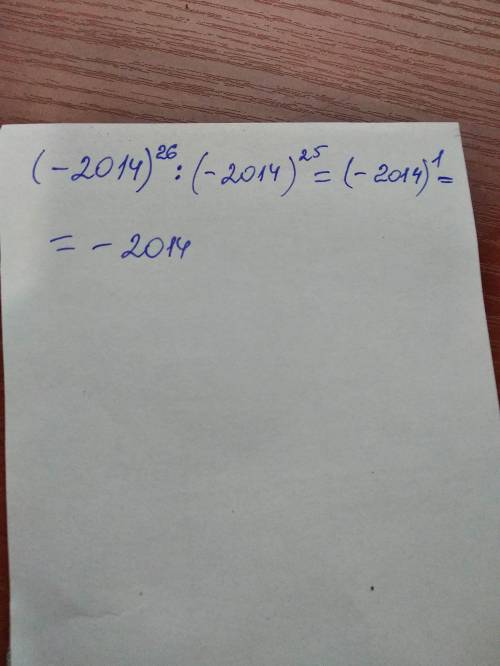 (-2014)²⁶ : (-2014)²⁵ = (-2014)¹ =
= - 2014